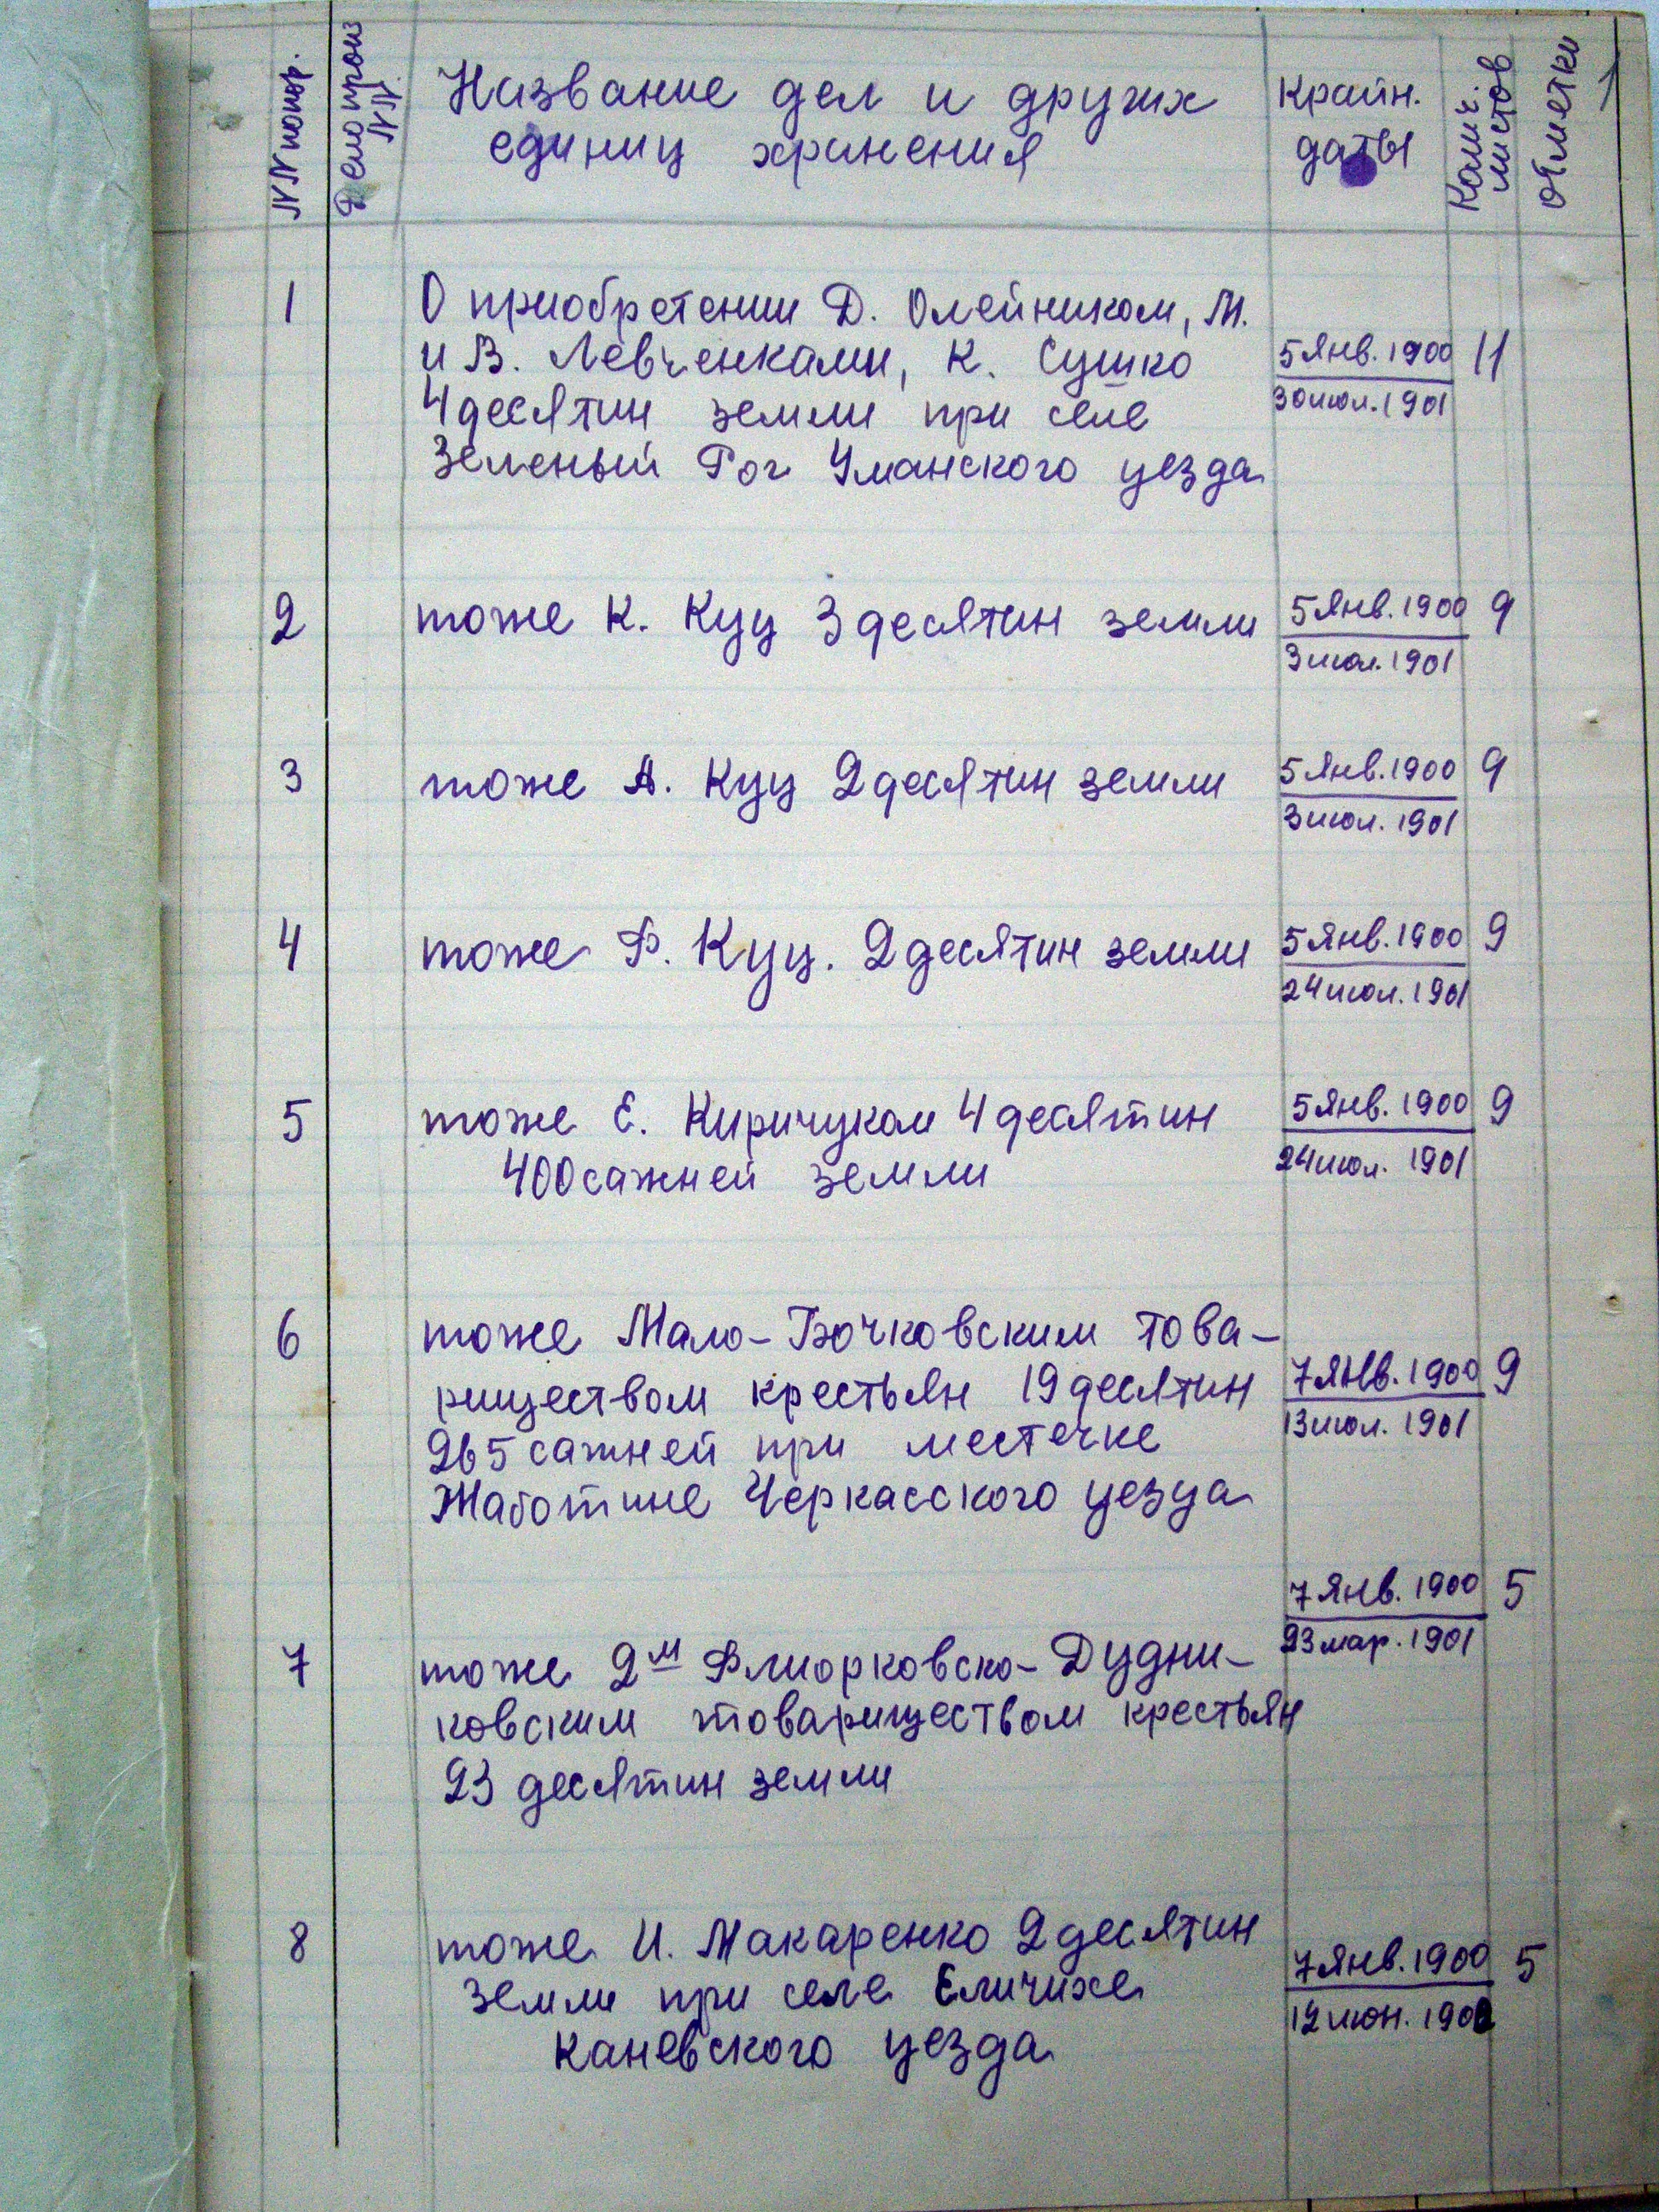 NN попор.
Делопроиз
NN.
Название дел и других
единиц хранения
Крайн.
даты
Колич.
листов
Отметки
1
1
О приобретении Д. Олейником, М.
и В. Левченками, К. Сушко
4 десятин земли при селе
Зеленый Рог Уманского уезда
5 янв. 1900
30 июл. 1901
11
2
тоже К. Куц 3 десятин земли
5 янв. 1900
3 июл. 1901
9
3
тоже А. Куц 2 десятин земли
5 янв. 1900
3 июл. 1901
9
4
тоже Ф. Куц. 2 десятин земли
5 янв. 1900
24 июл. 1901
9
5
тоже Е. Киричуком 4 десятин
400 сажней земли
5 янв. 1900
24 июл. 1901
9
6
тоже Мало-Бочковским това-
риществом крестьян 19 десятин
265 сажней при местечке
Жаботине Черкасского уезда
7 янв. 1900
13 июл. 1901
9
7
тоже 2м Флиорковско-Дудни-
ковским товариществом крестьян
23 десятин земли
7 янв. 1900
23 мар. 1901
5
8
тоже И. Макаренко 2 десятин
земли при селе Еличихе
Каневского уезда
7 янв. 1900
12 июн. 1902
5